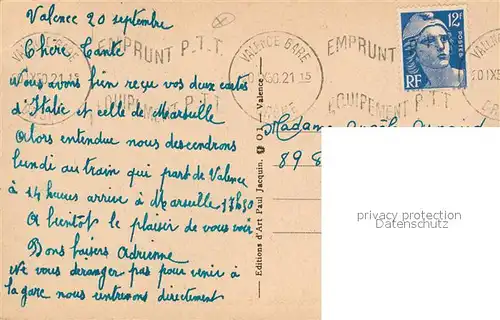 Valence 20 septembre
Chère Tante
Nous avons bien reçu vos deux cartes
d'Italie et celle de Marseille
Alors entendue nous descendrons
lundi au train qui part de Valence
à 14 heures arrive à Marseille 17h30
A bientôt le plaisir de vous voir
Bons baisers Adrienne
Ne vous deranger pas pour venir à
la gare nous rentrerons directement
VALENCE GARE
21 15
DROME
EMPRUNT P.T.T.
EQUIPEMENT P.T.T
VALENCE GARE
21 15
DROME
EMPRUNT
EQUIPEMENT P.T.T
VALENCE
12F
POSTES
RF
Editions d'Art Paul Jacquin, Valence
Madame
89
privacy protection